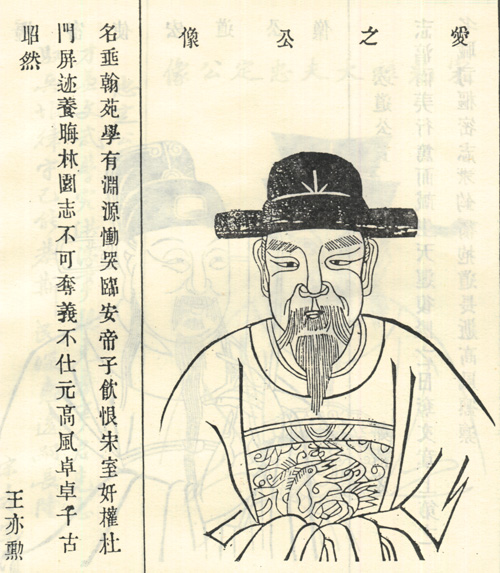 愛之公像
名垂翰苑學有淵源慟哭臨安帝子飲恨宋室奸權杜
門屏迹養晦林園志不可奪義不仕元高風卓卓千古
昭然
王亦勲